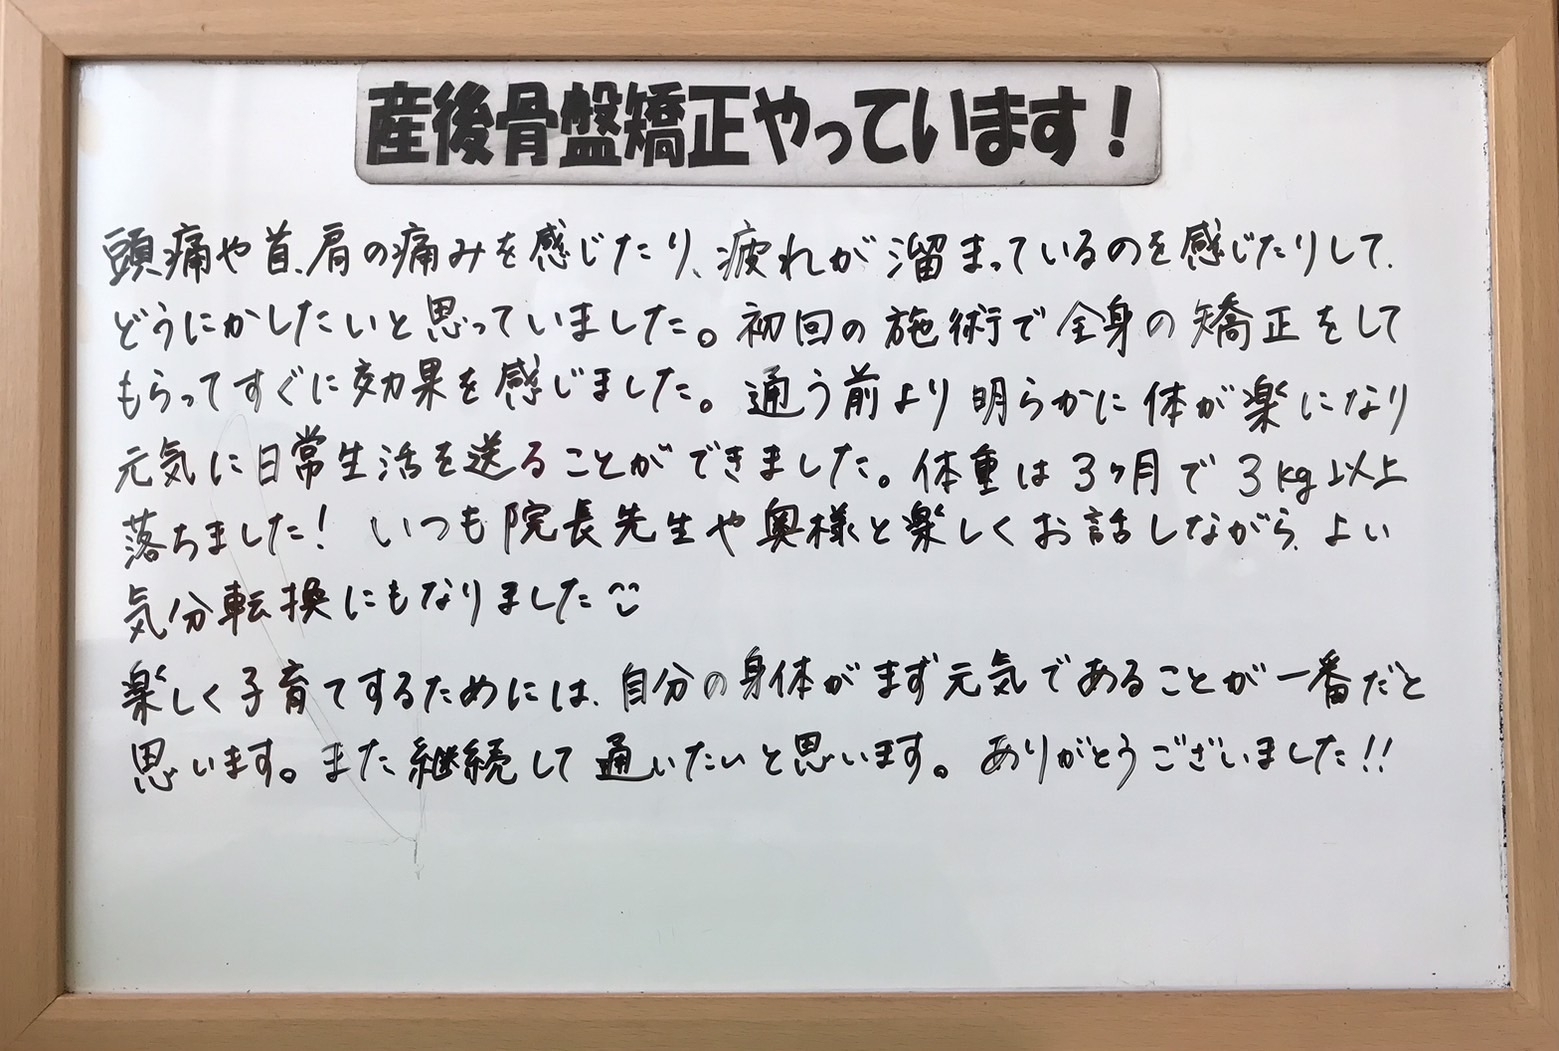 産後骨盤矯正やっています！
頭痛や首、肩の痛みを感じたり、疲れが溜まっているのを感じたりして、
どうにかしたいと思っていました。初回の施術で全身の矯正をして
もらってすぐに効果を感じました。通う前より明らかに体が楽になり
元気に日常生活を送ることができました。体重は3ヶ月で3kg以上
落ちました！いつも院長先生や奥様と楽しくお話しながら、よい
気分転換にもなりました
楽しく子育てするためには、自分の身体がまず元気であることが一番だと
思います。また継続して通いたいと思います。ありがとうございました!!